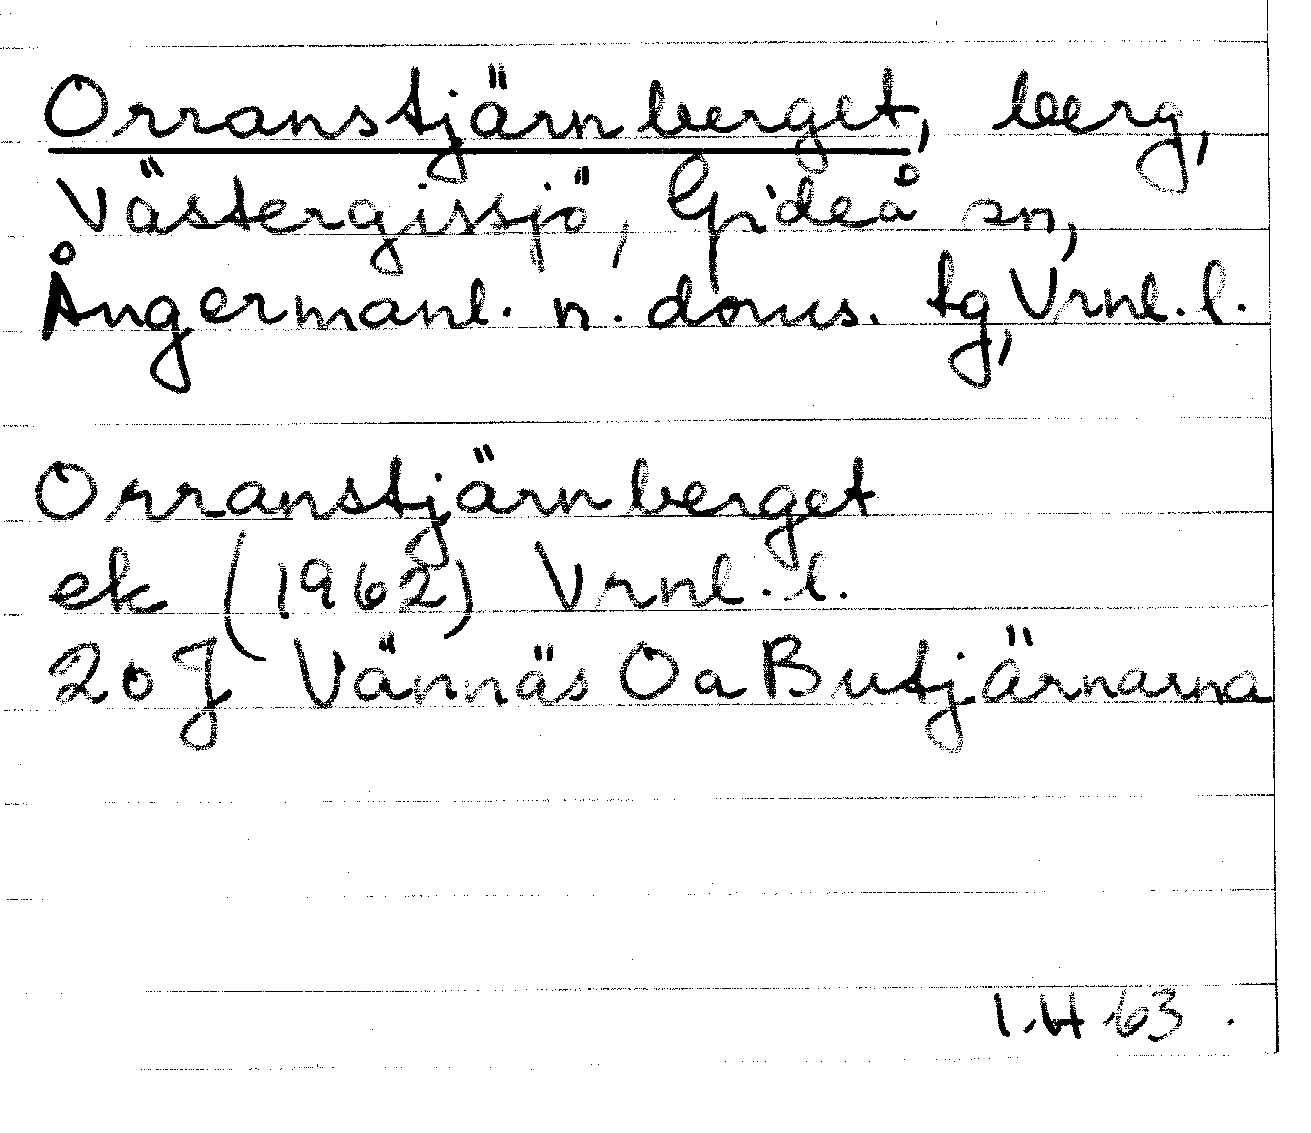 Orranstjärnberget, berg,
Västergissjö, Gideå sn,
Ångermanl. n. doms. tg, Vrnl. l.
Orranstjärnberget
ek (1962) Vrnl. l.
20 J Vännäs Oa Butjärnarna
I.H 63.